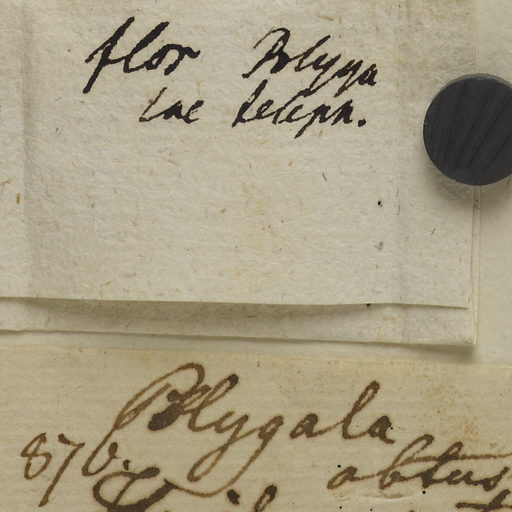 flor Polyga
lae teleph.
Polygala
876. obtus